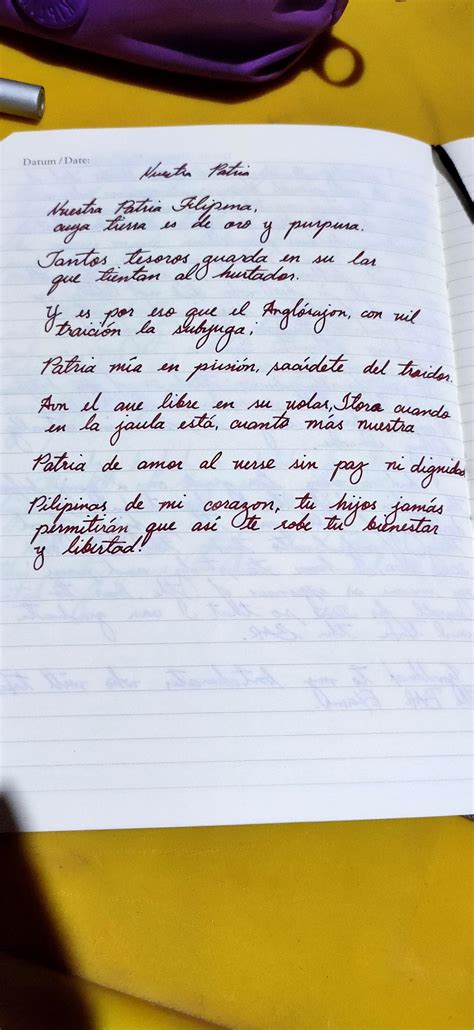 Datum / Date:
Nuestra Patria
Nuestra Patria Filipina,
cuya tierra es de oro y purpura.
Tantos tesoros guarda en su lar
que tientan al hurtador.
Y es por eso que el Anglósajon, con vil
traición la subyuga;
Patria mía en prisión, sacúdete del traidor.
Aun el ave libre en su volar, Llora cuando
en la jaula está, cuanto más nuestra
Patria de amor al verse sin paz ni dignidad
Pilipinas de mi corazon, tu hijos jamás
permitirán que así te robe tu bienestar
y libertad!